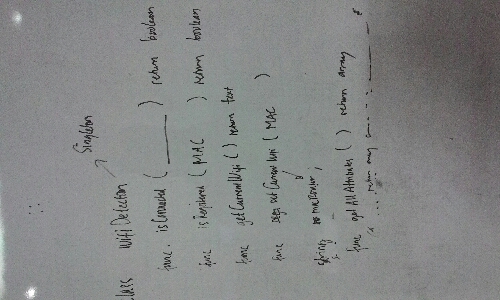 Class Wifi Detection → Singleton
func. isConnected ( ______ ) return boolean
func isRegistered ( MAC ) return boolean
func getCurrentWifi ( ) return text
func setCurrentWifi ( MAC )
string macRouter;
func getAllAttributes ( ) return array
return array